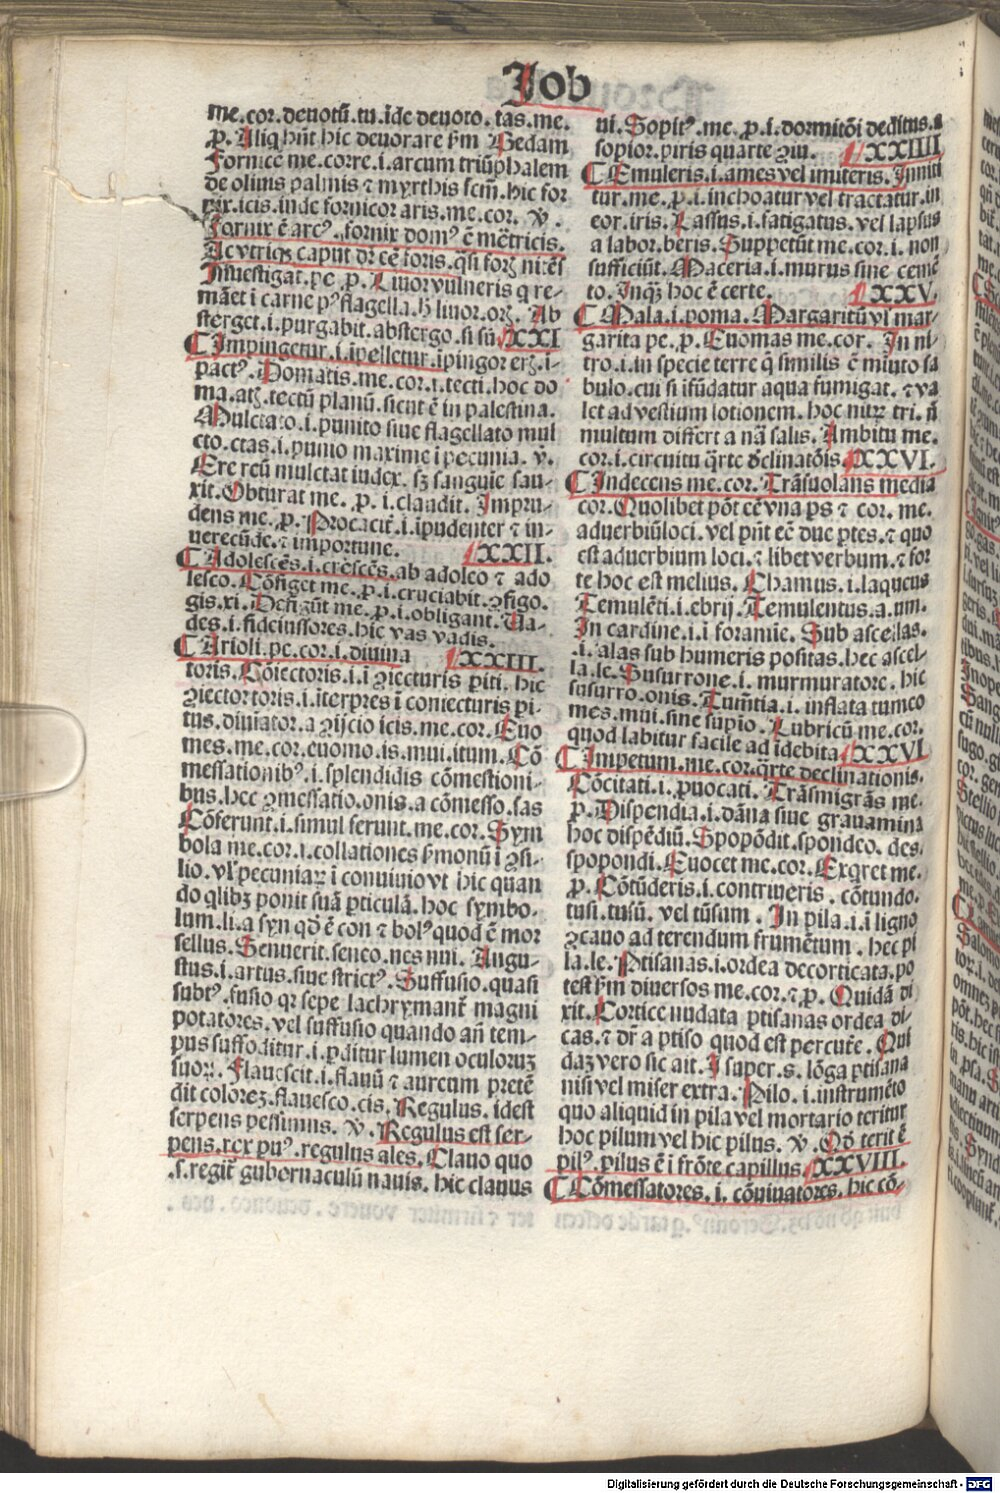 Job
me.cor.deuotū.tu.īde deuoto.tas.me.
p. Aliq hn̄t hic deuorare ẜm Bedam
Fornice me.corre.i.arcum triūphalem
de oliuis palmis ⁊ myrthis scm̄.hic for
nix.icis.inde fornicor aris.me.cor. v̈.
Fornix ē arcꝰ.fornix domꝰ ē mētricis.
Ac vtriqꝫ caput dr̄ cē foris.qsi forꝫ nitēs
Inuestigat.pe.p. Liuor vulneris q re-
māet ī carne pꝰ flagella.h̄ liuor.orꝫ. Ab
sterget.i.purgabit.abstergo.si sū. XXI
Impingetur.i.īpelletur.īpingor erꝫ.i-
pactꝰ. Domatis.me.cor.i.tecti.hoc do
ma.atꝫ.tectū planū.sicut ē in palestina.
Mulctato.i.punito siue flagellato mul
cto.ctas.i.punio maxime ī pecunia. v̈.
Ere reū mulctat iudex. sꝫ sanguīe sau-
xit. Obturat me. p.i.claudit. Impru-
dens me.p. Procacit̄.i.īpudenter ⁊ in-
uerecūde.⁊ importune. XXII.
Adolescēs.i.crescēs.ab adoleo ⁊ ado
lesco. Cōfiget me.p.i.cruciabit.ꝯfigo.
gis.xi. Defigūt me.p.i.obligant. Ua-
des.i.fideiussores.hic vas vadis.
Arioli.pe.cor.i.diuina XXIII.
toris. Cōiectoris.i.ī ꝯiecturis piti. hic
ꝯiector toris.i.īterpres ī coniecturis pi-
tus.diuiator.a ꝯijcio icis.me.cor. Euo
mes.me.cor.euomo.is.mui.itum. Cō
messationibꝰ.i.splendidis cōmestioni-
bus.hec ꝯmessatio.onis.a cōmesso.sas
Cōferunt.i.simul ferunt.me.cor. Sym
bola me.cor.i.collationes ẜmonū ī ꝯsi-
lio.vl̄ pecuniaꝝ ī conuiuio vt hic quan
do qlibꝫ ponit suā pticulā.hoc symbo-
lum.li.a syn qd̄ ē con ⁊ bolꝰ quod ē mor
sellus. Senuerit.senco.nes nui. Angu-
stus.i.artus.siue strictꝰ. Suffusio.quasi
subtꝰ.fusio qr sepe lachrymant̄ magni
potatores.vel suffusio quando an̄ tem-
pus suffoditur.i.pditur lumen oculoruꝫ
suoꝝ. Flauescit.i.flauū ⁊ aureum pretē
dit coloreꝫ.flauesco.cis. Regulus.idest
serpens pessimus. v̈. Regulus est ser-
pens.rex puꝰ.regulus ales. Clauo quo
.s.regit̄ gubernaculū nauis. hic clauus
ui. Sopitꝰ.me.p.i.dormitōi deditus.a
sopior.piris quarte ꝯiu. XXIIII
Emuleris.i.ames vel imiteris. Inniti
tur.me.p.i.inchoatur vel tractatur.in
eor.iris. Lassus.i.fatigatus.vel lapsus
a labor.beris. Suppetūt me.cor.i.non
sufficiūt. Maceria.i.murus sine cemē
to. Inqꝫ hoc ē certe. XXV.
Mala.i.poma. Margaritū vl̄ mar-
garita pe.p. Euomas me.cor. In ni-
tro.i.in specie terre q̄ similis ē mīuto sa
bulo.cui si īfūdatur aqua fumigat. ⁊ va
let ad vestium lotionem. hoc nitꝝ tri. n̄
multum differt a nā salis. Ambitu me.
cor.i.circuitu q̄rte dclinatōis XXVI.
Indecens me.cor. Trāsuolans media
cor. Quolibet pōt eē vna ps ⁊ cor. me.
aduerbiū loci. vel pn̄t eē due ptes.⁊ quo
est aduerbium loci.⁊ libet verbum.⁊ for
te hoc est melius. Chamus.i.laqueus
Temulēti.i.ebrij. Temulentus.a.um.
In cardine.i.ī foramīe. Sub ascellas.
.i.alas sub humeris positas.hec ascel-
la.le. Susurrone.i.murmuratore. hic
susurro.onis. Tumētia.i.inflata tumeo
mes.mui.sine supīo. Lubricū me.cor.
quod labitur facile ad īdebita XXVI.
Impetum.me.cor.q̄rte declinationis.
Cōcitati.i.puocati. Trāsmigrās me.
p. Dispendia.i.dāna siue grauamina
hoc dispēdiū. Spopōdit.spondeo.des.
spopondi. Euocet me.cor. Exqret me.
p. Cōtūderis.i.contriueris. cōtundo.
tusi.tusū. vel tūsum. In pila.i.ī ligno
ꝯcauo ad terendum frumētum. hec pi
la.le. Ptisanas.i.ordea decorticata.po
test ẜm diuersos me.cor.⁊.p. Quidā di
xit. Cortice nudata ptisanas ordea di-
cas.⁊ dr̄ a ptiso quod est percut̄e. Qui
daꝫ vero sic ait. I super.s.lōga ptisana
nisi vel miser extra. Pilo.i.instrumēto
quo aliquid in pila vel mortario teritur
hoc pilum vel hic pilus. v̈. Qd̄ terit ē
pilꝰ.pilus ē ī frōte capillus. XXVIII.
Cōmessatores.i.cōuiuatores.hic cō-
Digitalisierung gefördert durch die Deutsche Forschungsgemeinschaft - DFG